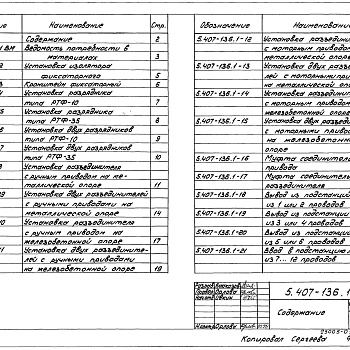 ие
Наименование
Стр.
Содержание
2
1 ВМ
Ведомость потребности в
материалах
3
Установка изолятора
фиксаторного
5
Кронштейн фиксаторный
6
Установка разрядника
типа РТФ-10
7
Установка разрядника
типа РТФ-35
8
Установка двух разрядников
типа РТФ-10
9
Установка двух разрядников
типа РТФ-35
10
Установка разъединителя
с ручным приводом на ме-
таллической опоре
11
Установка двух разъединителей
с ручными приводами на
металлической опоре
14
Установка разъединителя
с ручным приводом на
железобетонной опоре
17
Установка двух разъедините-
лей с ручными приводами
на железобетонной опоре
19
Обозначение
Наименование
5.407-136.1-12
Установка разъедин
с моторным приводом
металлической опоре
5.407-136.1-13
Установка двух разъе
лей с моторными при
на металлической оп
5.407-136.1-14
Установка разъедини
с моторным приводом
железобетонной опор
5.407-136.1-15
Установка двух разъе
с моторными приво
на железобетонной
опоре
5.407-136.1-16
Муфта соединител
привода
5.407-136.1-17
Муфта соединител
разъединителя
5.407-136.1-18
Вывод из подстанц
из 1 или 2 проводов
5.407-136.1-19
Вывод из подстанци
из 3 или 4 проводов
5.407-136.1-20
Вывод из подстанци
из 5 или 6 проводов
5.407-136.1-21
Ввод в подстанцию
из 7...12 проводов
5.407-136.1
Содержание
Копировал Сергеева